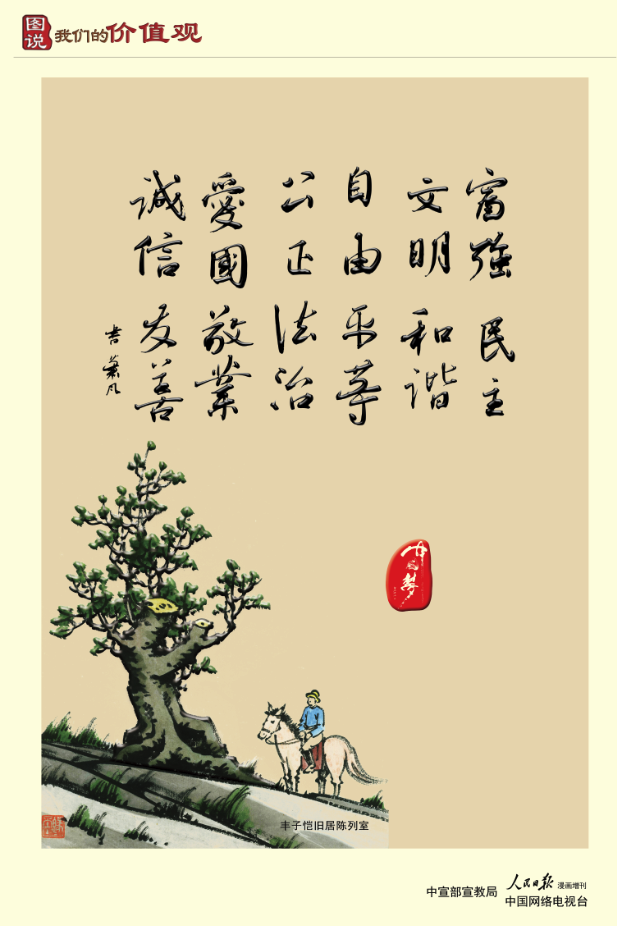 图说
我们的价值观
富强 民主
文明 和谐
自由 平等
公正 法治
愛國 敬業
誠信 友善
中国梦
丰子恺旧居陈列室
中宣部宣教局
人民日报 漫画增刊
中国网络电视台